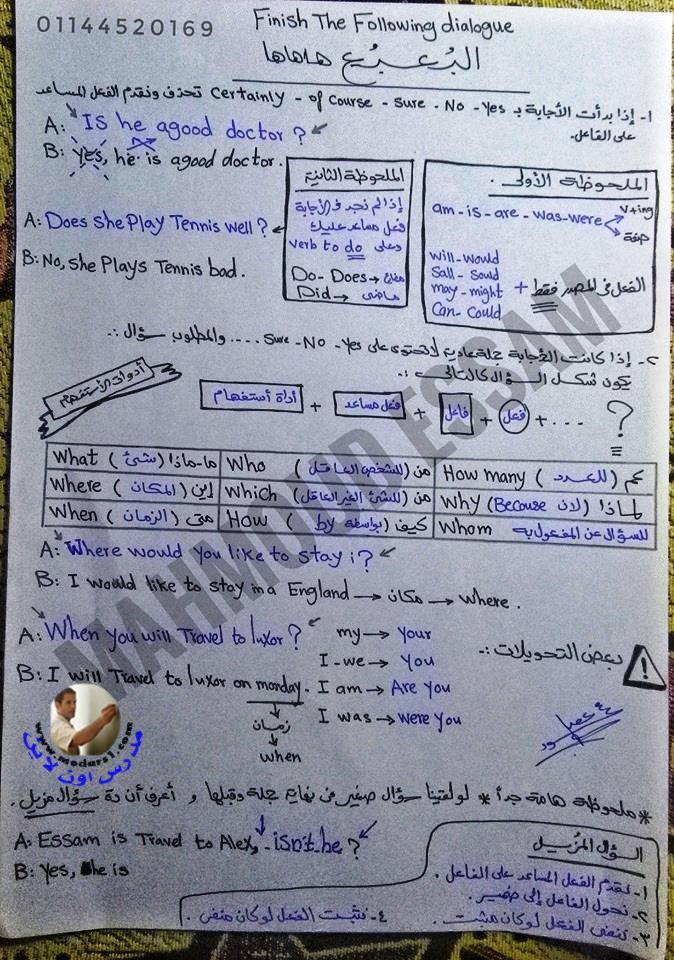 01144520169
Finish The Following dialogue
البُعبُع هاهاها
١- إذا بدأت الأجابة بـ Certainly - of course - sure - No - Yes تحذف ونقدم الفعل المساعد
على الفاعل.
A: Is he agood doctor ?
B: Yes, he is agood doctor.
الملحوظة الأولى .
am - is - are - was - were
V+ing
صفة
will - would
Sall - Sould
may - might
Can - Could
+ الفعل فى المصدر فقط
الملحوظة الثانية
إذا لم نجد فى الأجابة
فعل مساعد عليك
وعلى verb to do
Do - Does → مضارع
Did → ماضى
A: Does she Play Tennis well ?
B: No, she Plays Tennis bad .
٢- إذا كانت الأجابة جملة عادية لا تحتوى على Sure - No - Yes .... والمطلوب سؤال :.
يكون شكل السؤال كالتالى :.
أدوات الأستفهام
أداة أستفهام + فعل مساعد + فاعل + فعل + ... ?
What ( شئ ) ما-ماذا
Who ( للشخص العاقل ) من
How many ( للعدد ) كم
Where ( المكان ) اين
Which ( للشئ الغير العاقل ) من
Why (Because لان ) لماذا
When ( الزمان ) متى
How ( by بواسطه ) كيف
Whom للسؤال عن المفعول به
A: Where would you like to stay i?
B: I would like to stay in a England → مكان → where .
A: When you will Travel to luxor ?
B: I will Travel to luxor on monday.
زمان
when
بعض التحويلات :-
my → your
I - we → You
I am → Are you
I was → were you
MAHMOUD ESSAM
www.modars1.com
مدرس اون لاين
* ملحوظة هامة جداً * لو لقينا سؤال صغير فى نهاية جملة وقبلها و أعرف أن دة سؤال مزيل .
A: Essam is Travel to Alex, - isn't he ?
B: Yes, he is
السؤال المزيل
١- نقدم الفعل المساعد على الفاعل .
٢- نحول الفاعل إلى ضمير .
٣- ننفى الفعل لو كان مثبت .
٤- نثبت الفعل لو كان منفى .